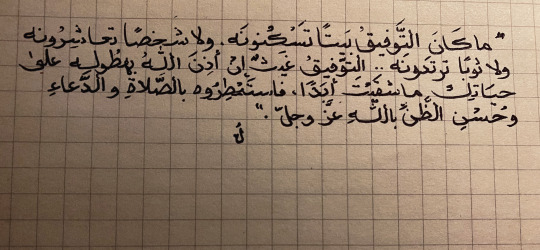 "ما كَانَ التَّوفيقُ بَيتًا تَسْكُنونَه، ولا شَخصًا تعاشِرُونه
ولا ثوبًا ترتدونَه .. التَّوفيقُ غَيثٌ إن أذِنَ اللهُ بهطُولِه على
حيَاتِكَ ما شَقِيتَ أبَدًا، فاستَمْطِرُوه بالصَّلاةِ والدُّعاءِ
وحُسْنِ الظَّنِّ باللهِ عزَّ وجلّ."